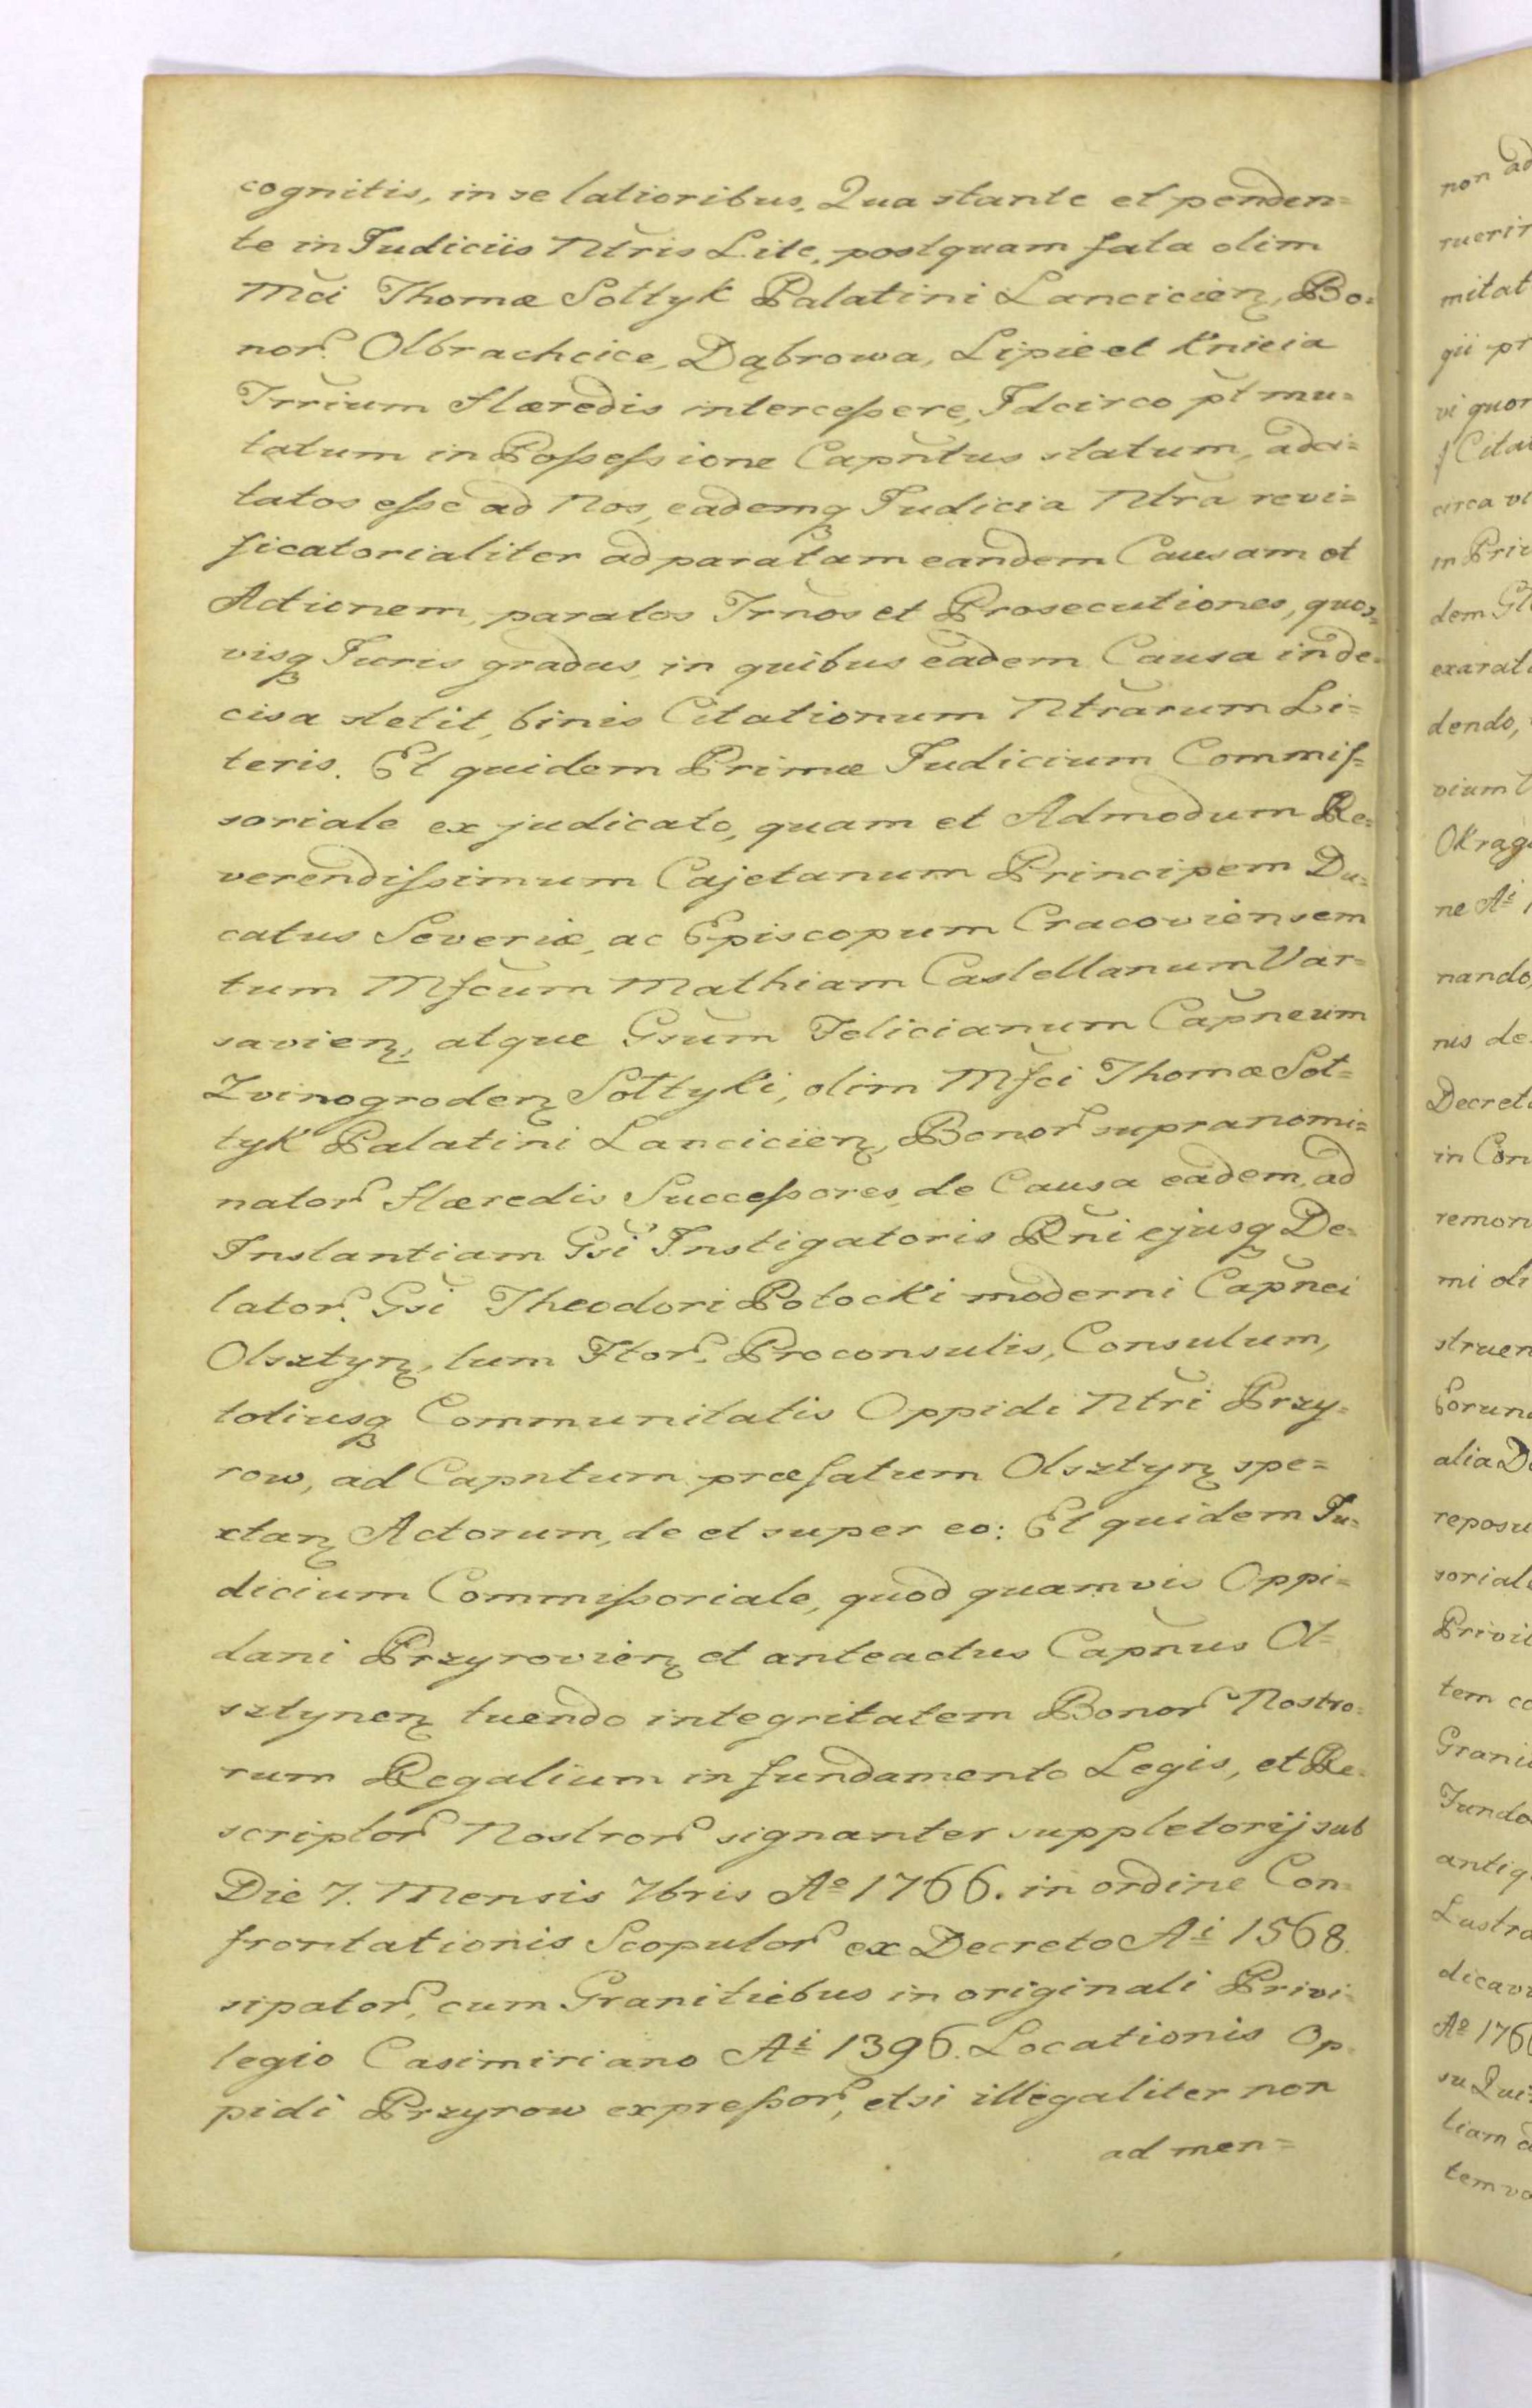 cognitis, in se latioribus. Qua stante et penden=
te in Judiciis Ntris Lite, postquam fata olim
Mci Thomæ Sołtyk Palatini Lancicien, Bo=
nor. Olbrachcice, Dąbrowa, Lipie et Knieia
Trrium Hæredis intercessere, Idcirco pt mu=
tatum in Possessione Capntus statum, adci=
tatos esse ad Nos, eademq Judicia Ntra revi=
ficatorialiter ad paratam eandem Causam et
Actionem, paratos Trnos et Prosecutiones, quos=
visq Juris gradus, in quibus eadem Causa inde=
cisa stetit, binis Citationum Ntrarum Li=
teris. Et quidem Primæ Judicium Commis=
soriale ex judicato, quam et Admodum Re=
verendissimum Cajetanum Principem Du=
catus Severiæ, ac Episcopum Cracoviensem
tum Mfcum Mathiam Castellanum Var=
savien, atque Gsum Felicianum Capneum
Zvinogroden Sołtyki, olim Mfci Thomæ Soł=
tyk Palatini Lancicien, Bonor supranomi=
nator Hæredis Successores, de Causa eadem, ad
Instantiam Gsi Instigatoris Rni ejusq De=
lator. Gsi Theodori Potocki moderni Capnei
Olsztyn, tum Ftor. Proconsulis, Consulum,
totiusq Communitatis Oppidi Ntri Przy=
row, ad Capntum præfatum Olsztyn spe=
ctan Actorum, de et super eo: Et quidem Ju=
dicium Commissoriale, quod quamvis Oppi=
dani Przyrovien et anteactus Capnus Ol=
sztynen tuendo integritatem Bonor Nostro=
rum Regalium in fundamento Legis, et Re=
scriptor Nostror signanter suppletorij sub
Die 7. Mensis 7bris Ao 1766. in ordine Con=
frontationis Scopulor ex Decreto Ai 1568.
sipator, cum Granitiebus in originali Privi=
legio Casimiriano Ai 1396. Locationis Op=
pidi Przyrow expressor, etsi illegaliter non
ad men=